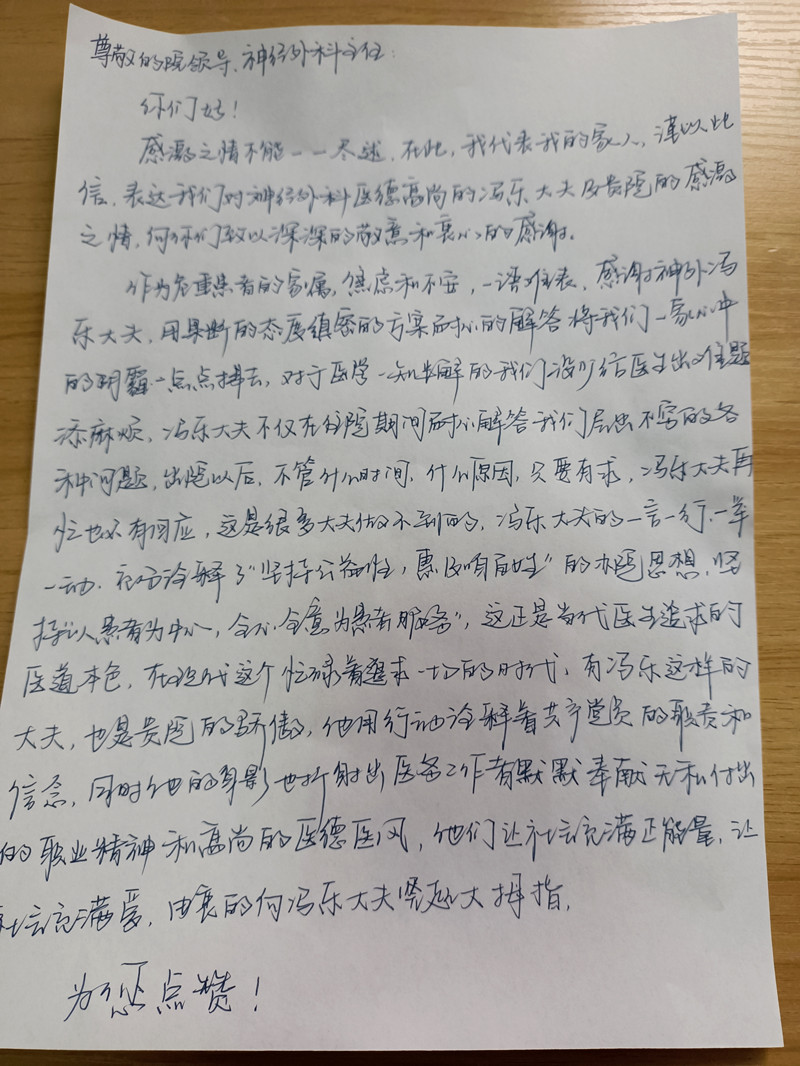 尊敬的院领导、神经外科主任:
你们好!
感激之情不能一一尽述,在此,我代表我的家人,谨以此
信,表达我们对神经外科医德高尚的冯乐大夫及贵院的感激
之情,向你们致以深深的敬意和衷心的感谢。
作为危重患者的家属,焦虑和不安,一语难表,感谢神外冯
乐大夫,用果断的态度缜密的方案耐心的解答将我们一家心中
的阴霾一点点拂去,对于医学一知半解的我们没少给医生出难题
添麻烦,冯乐大夫不仅在住院期间耐心解答我们层出不穷的各
种问题,出院以后,不管什么时间,什么原因,只要有求,冯乐大夫再
忙也必有回应,这是很多大夫做不到的,冯乐大夫的一言一行、一举
一动,诠释了"坚持公益性,惠及咱百姓"的办院思想,坚
持"以患者为中心,全心全意为患者服务",这正是当代医生追求的
医道本色,在现代这个忙碌着追求一切的时代,有冯乐这样的
大夫,也是贵院的骄傲,他用行动诠释着共产党员的职责和
信念,同时他的身影也折射出医务工作者默默奉献无私付出
的职业精神和高尚的医德医风,他们让社会充满正能量,让
社会充满爱,由衷的向冯乐大夫竖起大拇指,
为您点赞!